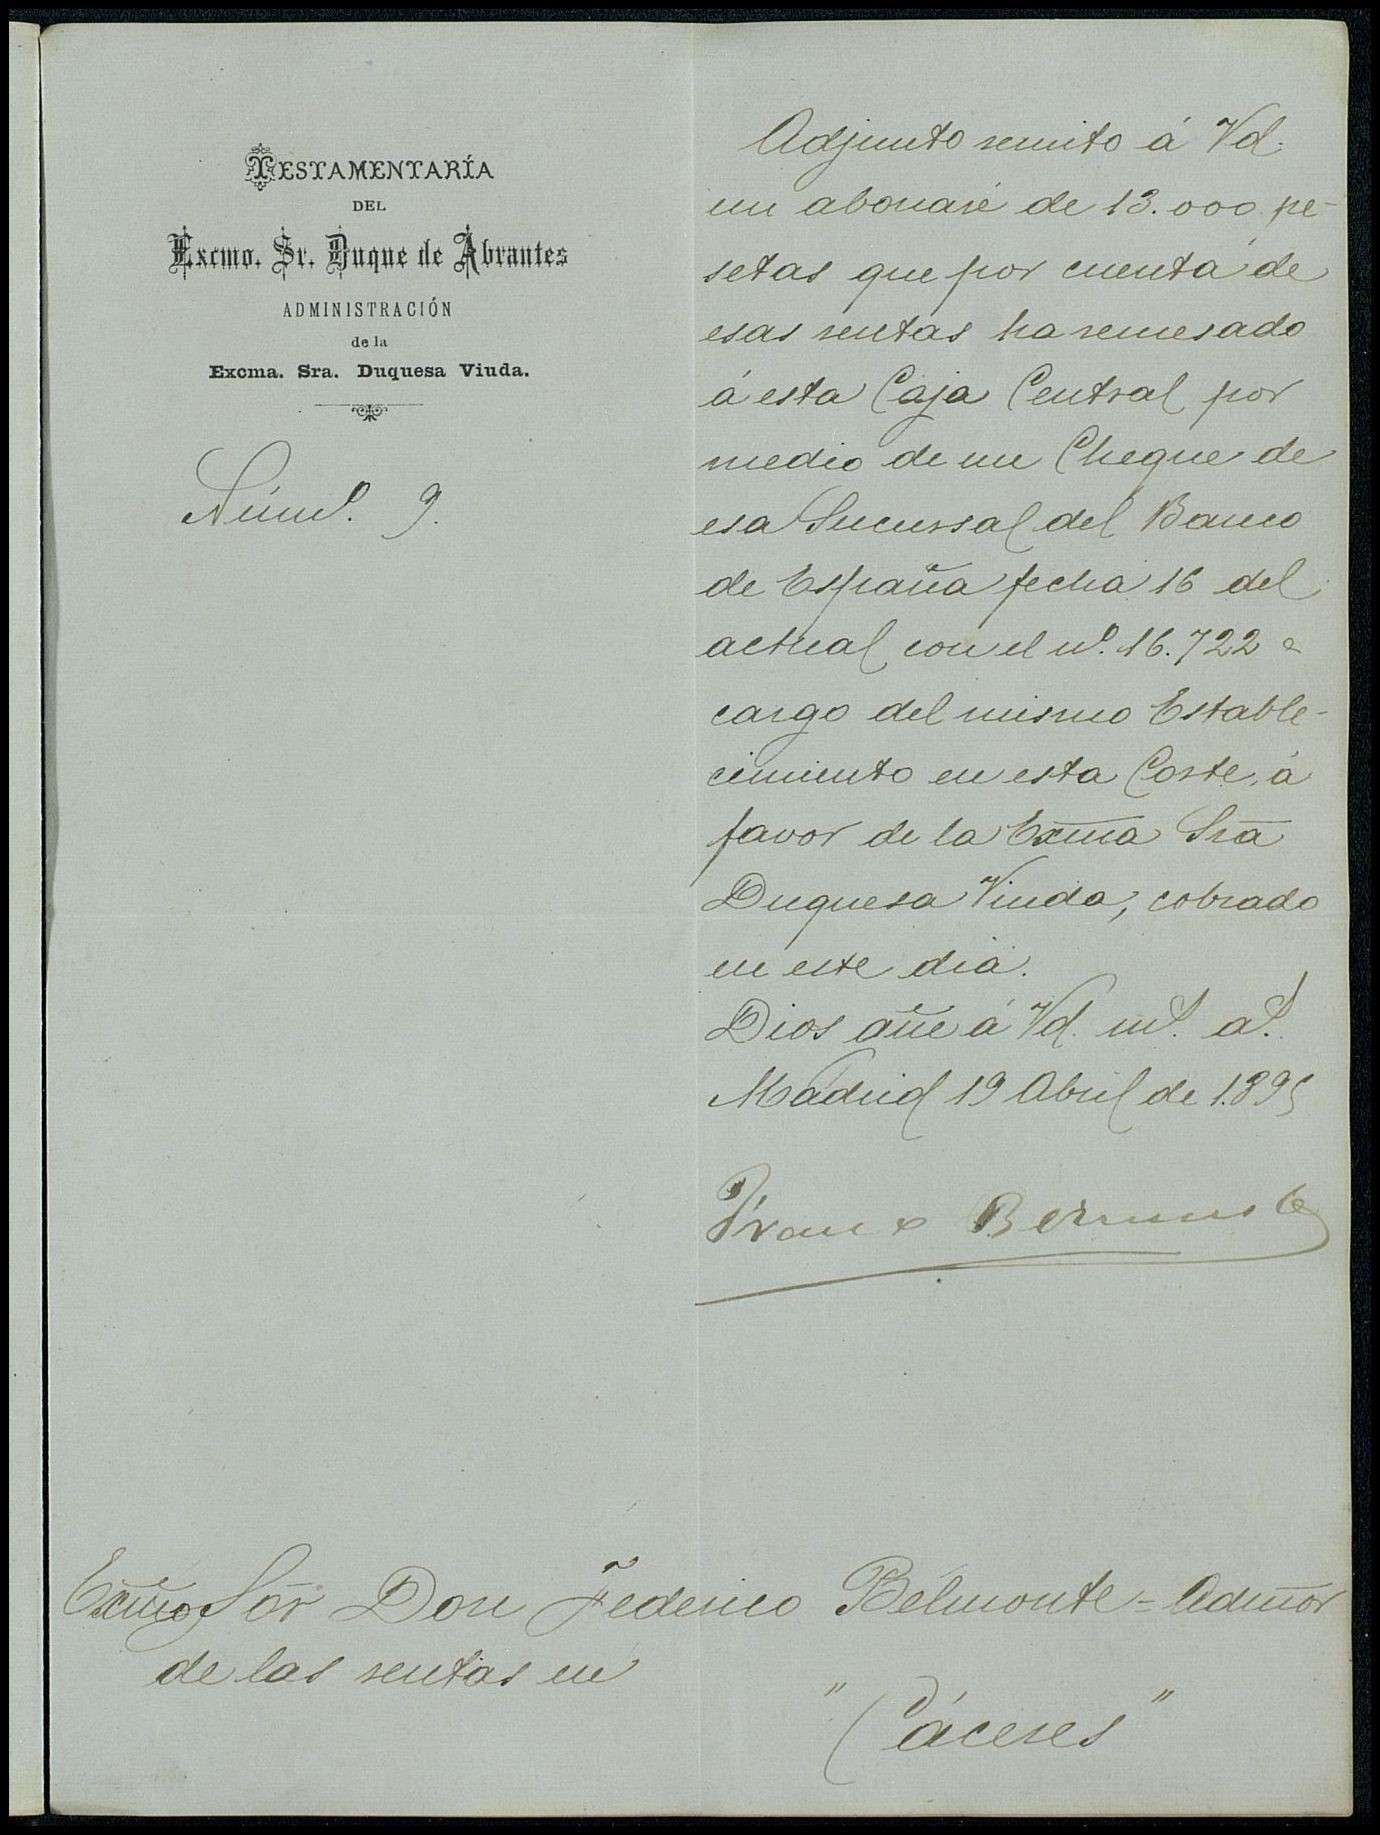 TESTAMENTARÍA
DEL
Excmo. Sr. Duque de Abrantes
ADMINISTRACIÓN
de la
Excma. Sra. Duquesa Viuda.
Núm.º 9.
Adjunto remito á Vd.
un abonaré de 13.000 pe-
setas que por cuenta de
esas rentas ha remesado
á esta Caja Central por
medio de un Cheque de
esa Sucursal del Banco
de España fecha 16 del
actual con el n.º 16.722 a
cargo del mismo Estable-
cimiento en esta Corte, á
favor de la Exma Sra
Duquesa Viuda, cobrado
en este dia.
Dios gũe á Vd. m.s a.s
Madrid 19 Abril de 1.895
Exmo Sor Don Federico Belmonte = Admor
de las rentas en
"Cáceres"